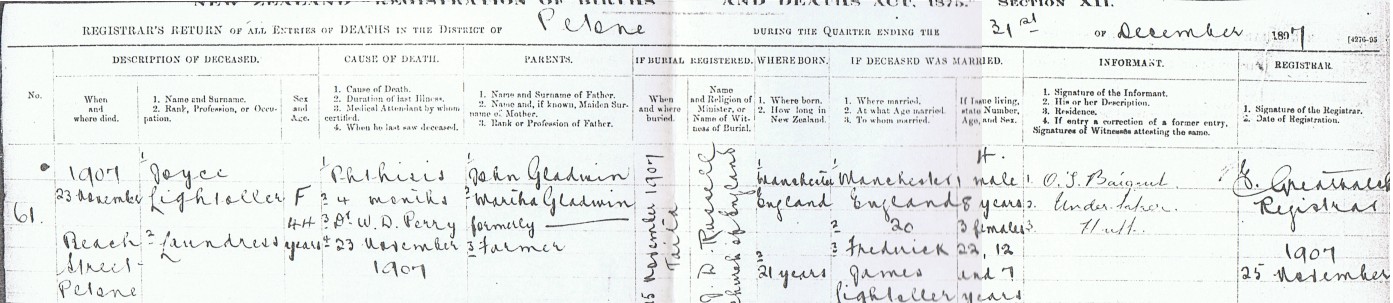 NEW ZEALAND REGISTRATION OF BIRTHS AND DEATHS ACT, 1875. SECTION XII.
REGISTRAR'S RETURN OF ALL ENTRIES OF DEATHS IN THE DISTRICT OF Petone DURING THE QUARTER ENDING THE 31st OF December 1897 [4276-95
DESCRIPTION OF DECEASED. CAUSE OF DEATH. PARENTS. IF BURIAL REGISTERED. WHERE BORN. IF DECEASED WAS MARRIED. INFORMANT. REGISTRAR.
No.
When and where died.
1. Name and Surname.
2. Rank, Profession, or Occupation.
Sex and Age.
1. Cause of Death.
2. Duration of last Illness.
3. Medical Attendant by whom certified.
4. When he last saw deceased.
1. Name and Surname of Father.
2. Name and, if known, Maiden Surname of Mother.
3. Rank or Profession of Father.
When and where buried.
Name and Religion of Minister, or Name of Witness of Burial.
1. Where born.
2. How long in New Zealand.
1. Where married.
2. At what Age married.
3. To whom married.
If Issue living, state Number, Age, and Sex.
1. Signature of the Informant.
2. His or her Description.
3. Residence.
4. If entry a correction of a former entry, Signatures of Witnesses attesting the same.
1. Signature of the Registrar.
2. Date of Registration.
61.
1907
23 November
Beach
Street
Petone
1 Joyce
Lightoller
2 Laundress
F
44
years
1 Phthisis
2 4 months
3 Dr W. D. Perry
4 23 November
1907
1 John Gladwin
2 Martha Gladwin
formerly
3 Farmer
25 November 1907
Taita
J. D. Russell
Church of England
1 Manchester
England
2 21 years
1 Manchester
England
2 20
3 Frederick
James
Lightoller
4.
1 male
8 years
3 females
22, 12
and 7
years
1. O. S. Baigent
2. Undertaker
3. Hutt.
Greathales
Registrar
1907
25 November